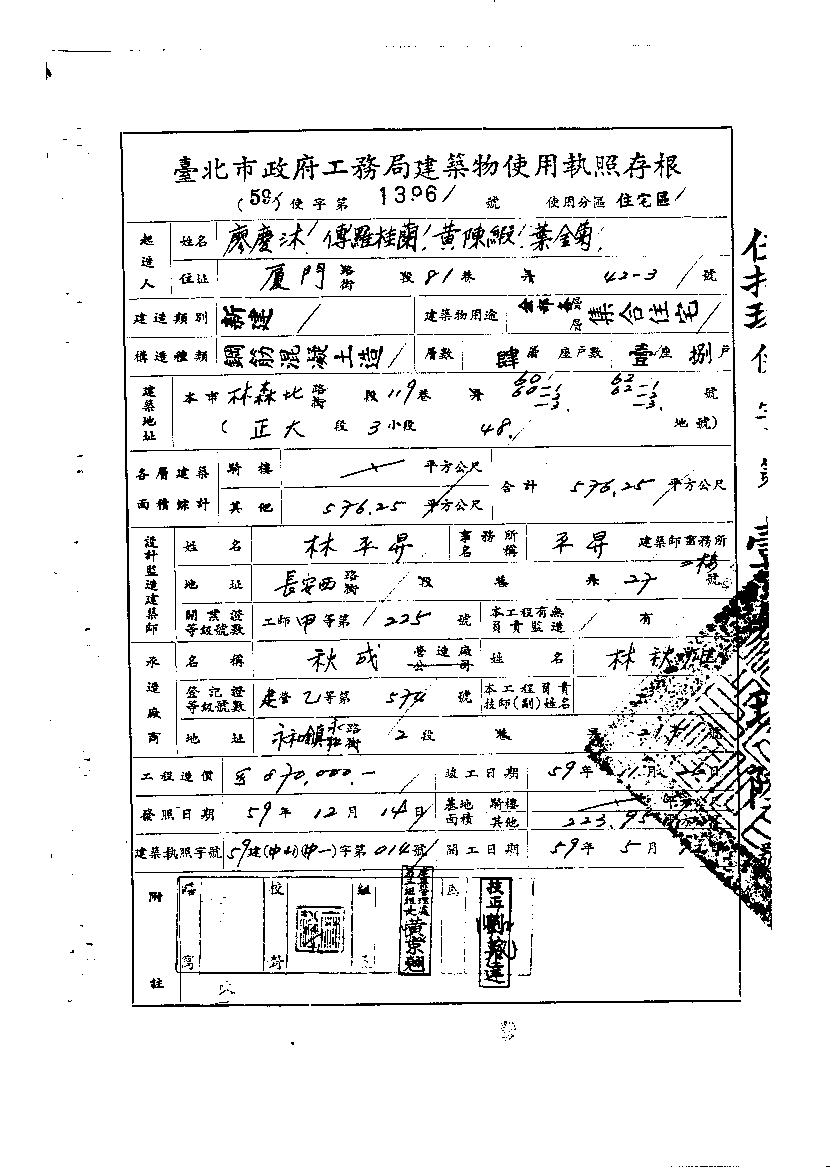 臺北市政府工務局建築物使用執照存根
(59)使字第 1396 號 使用分區 住宅區
起造人 姓名 廖慶沐 傅羅桂蘭 黃陳緞 葉金菊
住址 厦門路街 段 81 巷 弄 42-3 號
建造類別 新建 建築物用途 層 集合住宅
構造種類 鋼筋混凝土造 層數 肆層 座戶數 壹座 捌戶
建築地址 本市 林森北路街 段 119 巷 弄 60 60-1 -3 62 62-1 -3 號
(正大 段 3 小段 48 地號)
各層建築面積綜計 騎樓 平方公尺 合計 576.25 平方公尺
其他 576.25 平方公尺
設計監造建築師 姓名 林平昇 事務所名稱 平昇 建築師事務所
地址 長安西路街 段 巷 弄 27 號 二樓
開業證等級號數 工師 甲等第 225 號 本工程有無負責監造 有
承造廠商 名稱 秋成 營造廠公司 姓名 林秋
登記證等級號數 建營乙等第 574 號 本工程負責技師(副)姓名
地址 永和鎮永和路街 2 段 巷 弄 號
工程造價 870,000.- 竣工日期 59 年 11 月 日
發照日期 59 年 12 月 14 日 基地面積 騎樓 其他 223.95
建築執照字號 59建(中山)(中一)字第 014 號 開工日期 59 年 5 月
附註 校對 組 技正